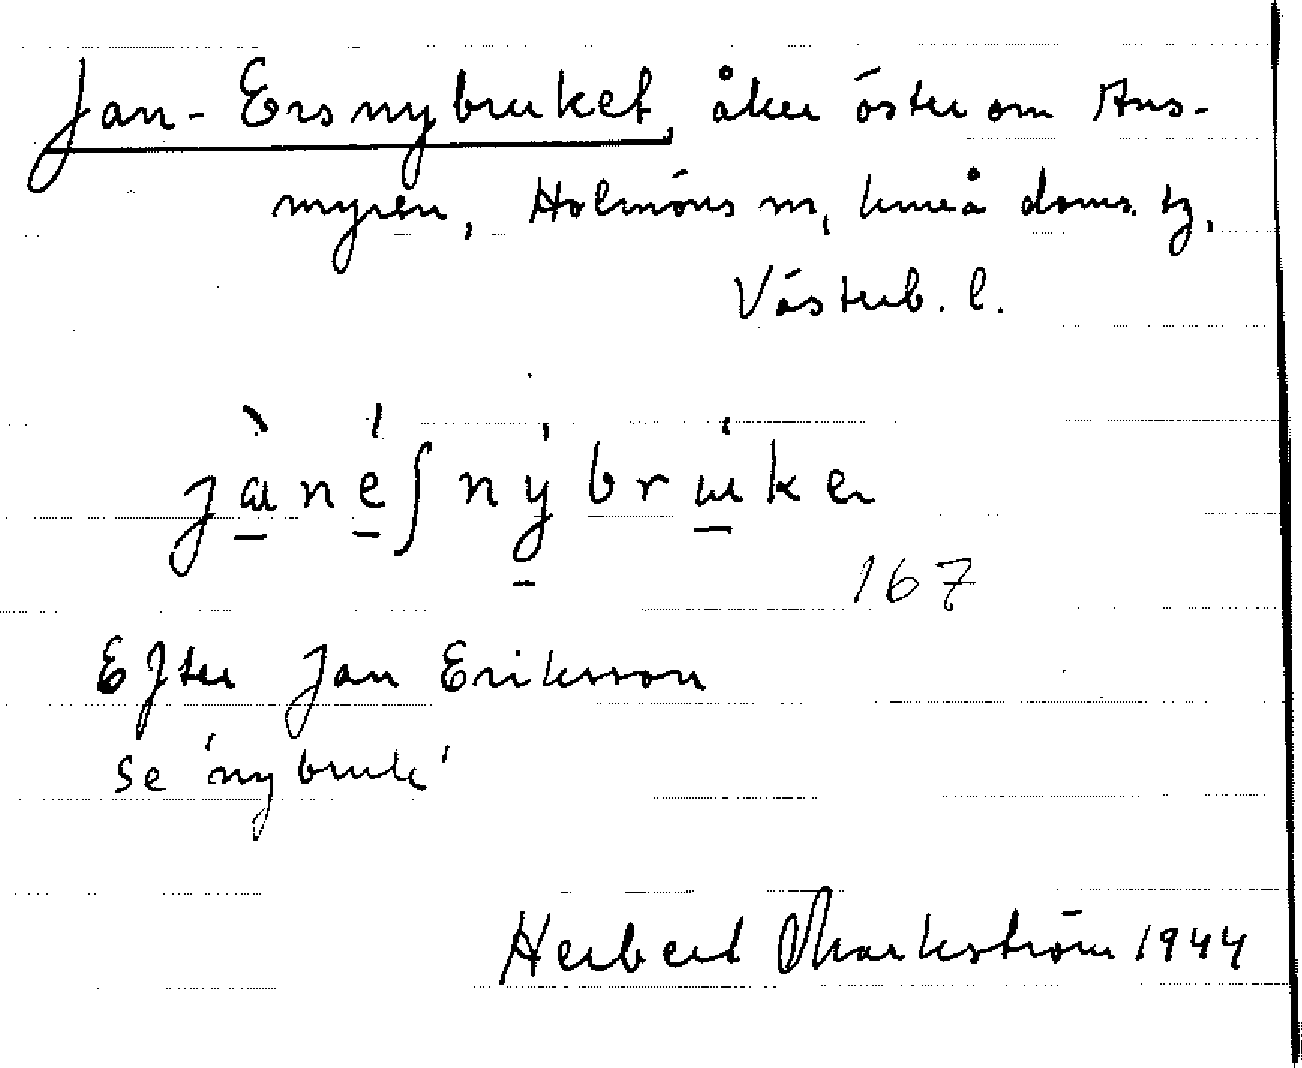 Jan-Ersnybruket, åker öster om Ans-
myren, Holmöns sn, Umeå doms. tz,
Västerb. l.
jànéʃnýbrùker
167
Efter Jan Eriksson
se 'nybruk'
Herbert Markström 1944